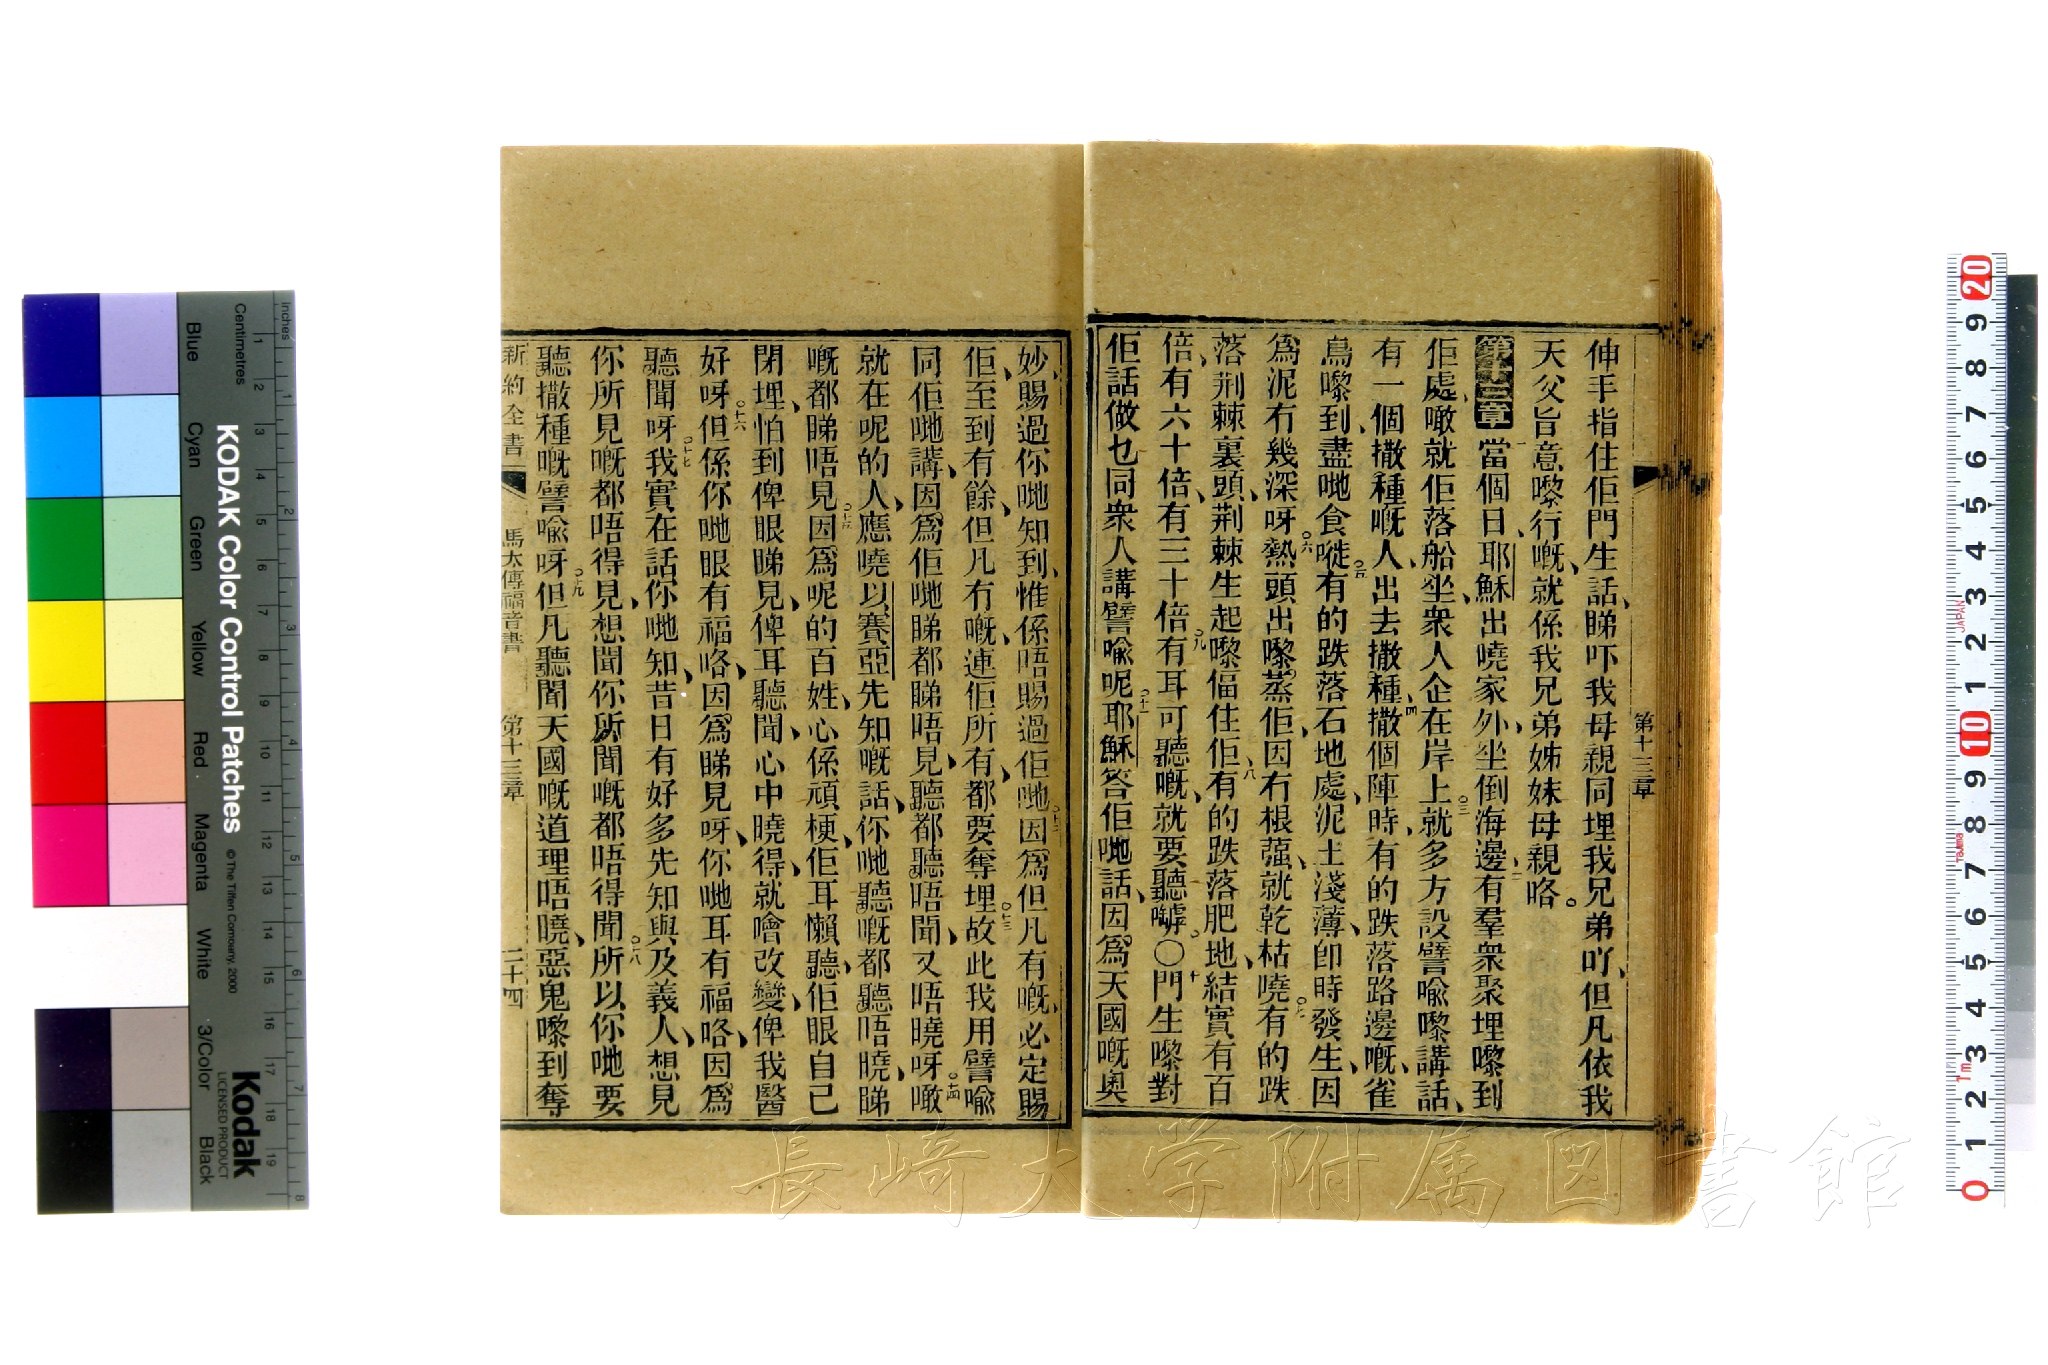 第十三章
伸手指住佢門生、話、睇吓我母親同埋我兄弟吖、但凡依我
天父旨意嚟行嘅、就係我兄弟姊妹母親咯。
第十三章 一當個日耶穌出嘵家外、坐倒海邊、二有羣衆聚埋嚟到
佢處、噉就佢落船坐、衆人企在岸上、三就多方設譬喻嚟講話、
有一個撒種嘅人、出去撒種、四撒個陣時、有的跌落路邊嘅、雀
鳥嚟到、盡哋食嘥、五有的跌落石地處、泥土淺薄、卽時發生、因
爲泥冇幾深呀、六熱頭出嚟蒸佢、因冇根蔃、就乾枯嘵、七有的跌
落荆棘裏頭、荆棘生起嚟偪住佢、八有的跌落肥地、結實有百
倍、有六十倍、有三十倍、九有耳可聽嘅、就要聽嘑。〇十門生嚟對
佢話、做乜同衆人講譬喻呢、十一耶穌答佢哋話、因爲天國嘅奥
妙、賜過你哋知到、惟係唔賜過佢哋、十二因爲但凡有嘅、必定賜
佢、至到有餘、但凡冇嘅、連佢所有、都要奪埋、十三故此我用譬喻
同佢哋講、因爲佢哋睇都睇唔見、聽都聽唔聞、又唔曉呀、十四噉
就在呢的人、應嘵以賽亞先知嘅話、你哋聽嘅都聽唔曉、睇
嘅都睇唔見、十五因爲呢的百姓、心係頑梗、佢耳懶聽、佢眼自己
閉埋、怕到俾眼睇見、俾耳聽聞、心中曉得、就噲改變、俾我醫
好呀、十六但係你哋眼有福咯、因爲睇見呀、你哋耳有福咯、因爲
聽聞呀、十七我實在話你哋知、昔日有好多先知與及義人、想見
你所見嘅都唔得見、想聞你所聞嘅都唔得聞、十八所以你哋要
聽撒種嘅譬喻呀、十九但凡聽聞天國嘅道理唔曉、惡鬼嚟到奪
新約全書 馬太傳福音書 第十三章 二十四
長崎大学附属図書館
Inches
Centimetres
KODAK Color Control Patches
© The Tiffen Company, 2000
Kodak
LICENSED PRODUCT
Blue
Cyan
Green
Yellow
Red
Magenta
White
3/Color
Black
JAPAN